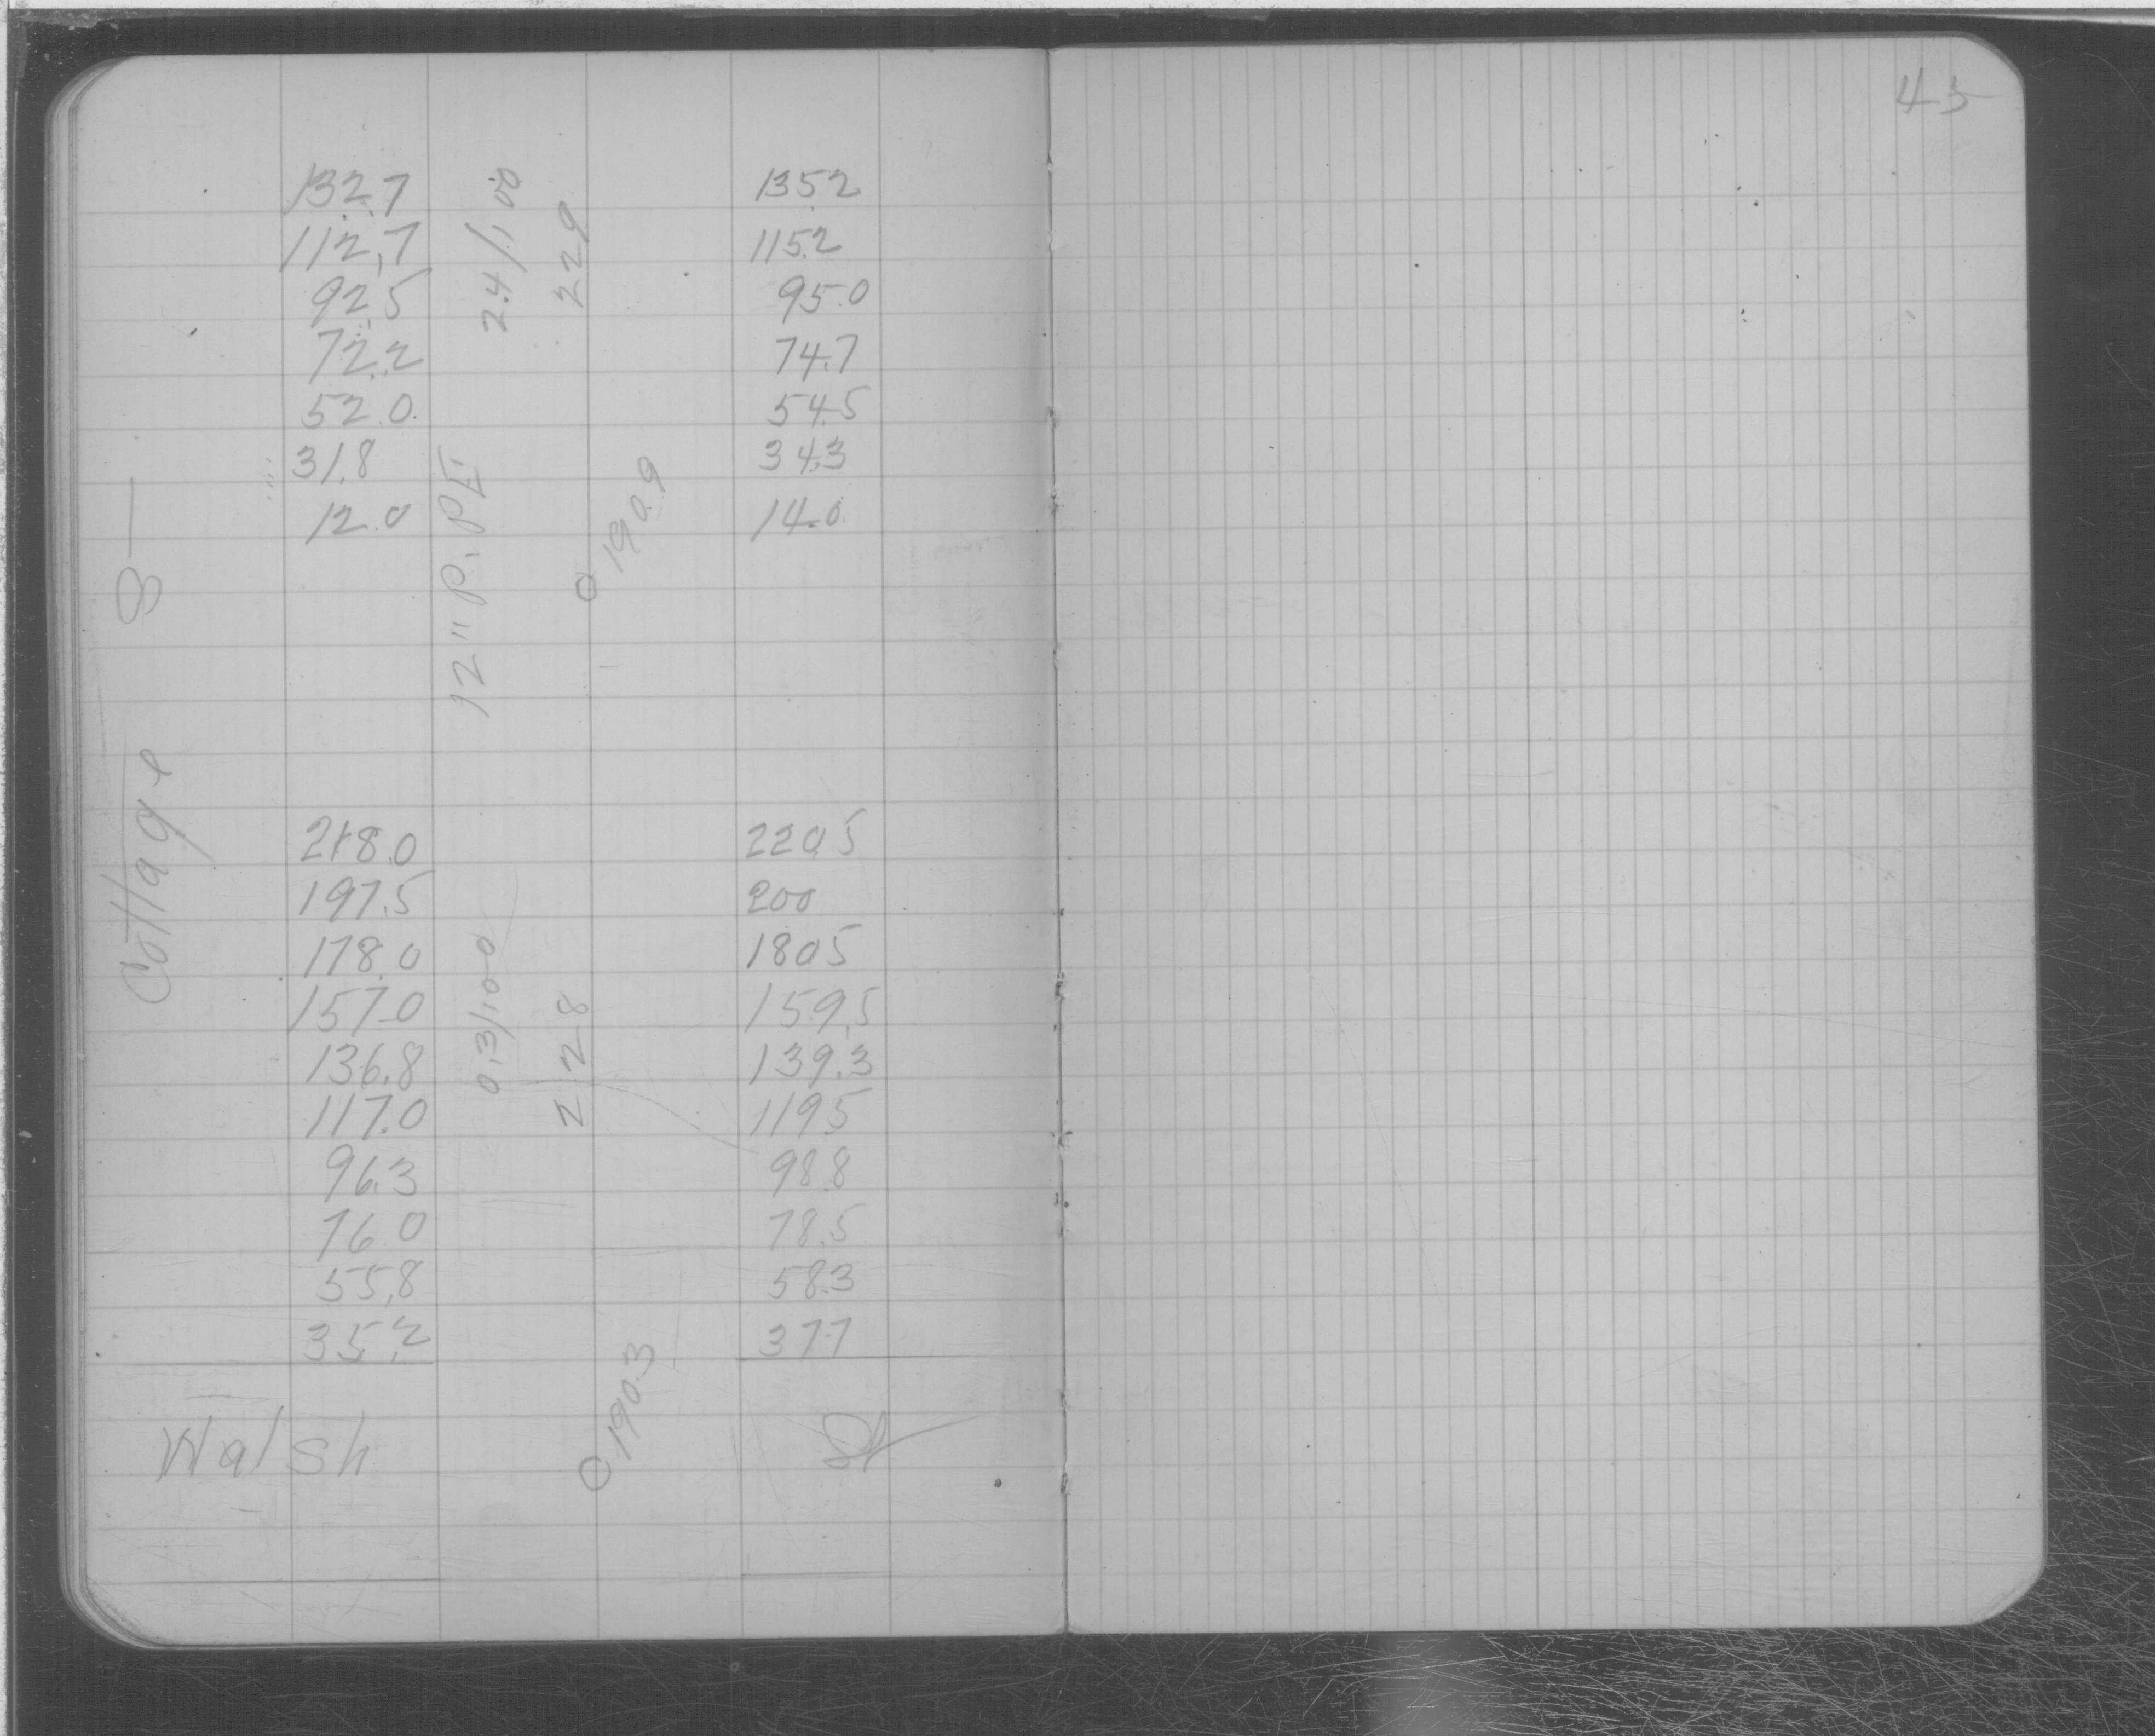 43
132.7 2.4/100 135.2
112.7 229 115.2
92.5 95.0
72.2 74.7
52.0 54.5
31.8 190.9 34.3
12.0 14.0
8 —
Cottage
218.0 220.5
197.5 200
178.0 180.5
157.0 0.3/100 159.5
136.8 228 139.3
117.0 119.5
96.3 98.8
76.0 78.5
55.8 58.3
35.2 190.3 37.7
Walsh St